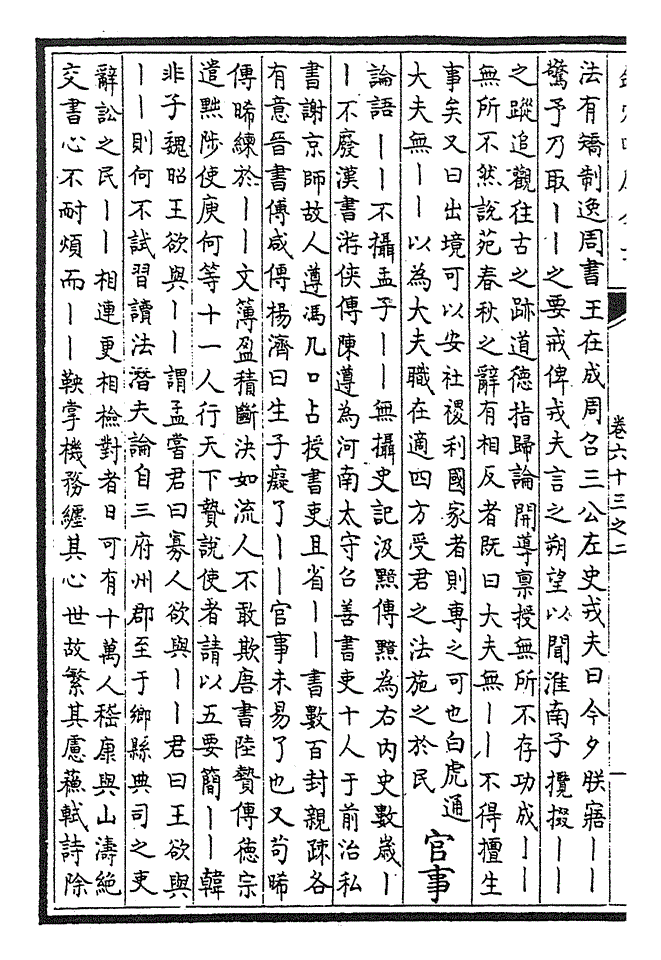 卷六十三之二
一
法有矯制逸周書王在成周召三公左史戎夫曰今夕朕寤丨丨
驚予乃取丨丨之要戒俾戎夫言之朔望以聞淮南子攬掇丨丨
之蹤追觀往古之跡道德指歸論開導禀授無所不存功成丨丨
無所不然說苑春秋之辭有相反者既曰大夫無丨丨不得擅生
事矣又曰出境可以安社稷利國家者則專之可也白虎通
大夫無丨丨以為大夫職在適四方受君之法施之於民
官事
論語丨丨不攝孟子丨丨無攝史記汲黯傳黯為右內史數歲丨
丨不廢漢書游俠傳陳遵為河南太守召善書吏十人于前治私
書謝京師故人遵馮几口占授書吏且省丨丨書數百封親疎各
有意晉書傅咸傳楊濟曰生子癡了丨丨官事未易了也又荀晞
傳晞練於丨丨文簿盈積斷決如流人不敢欺唐書陸贄傳德宗
遣黜陟使庾何等十一人行天下贄說使者請以五要簡丨丨韓
非子魏昭王欲與丨丨謂孟嘗君曰寡人欲與丨丨君曰王欲與
丨丨則何不試習讀法潛夫論自三府州郡至于鄉縣典司之吏
辭訟之民丨丨相連更相檢對者日可有十萬人嵇康與山濤絕
交書心不耐煩而丨丨鞅掌機務纏其心世故繁其慮蘇軾詩除